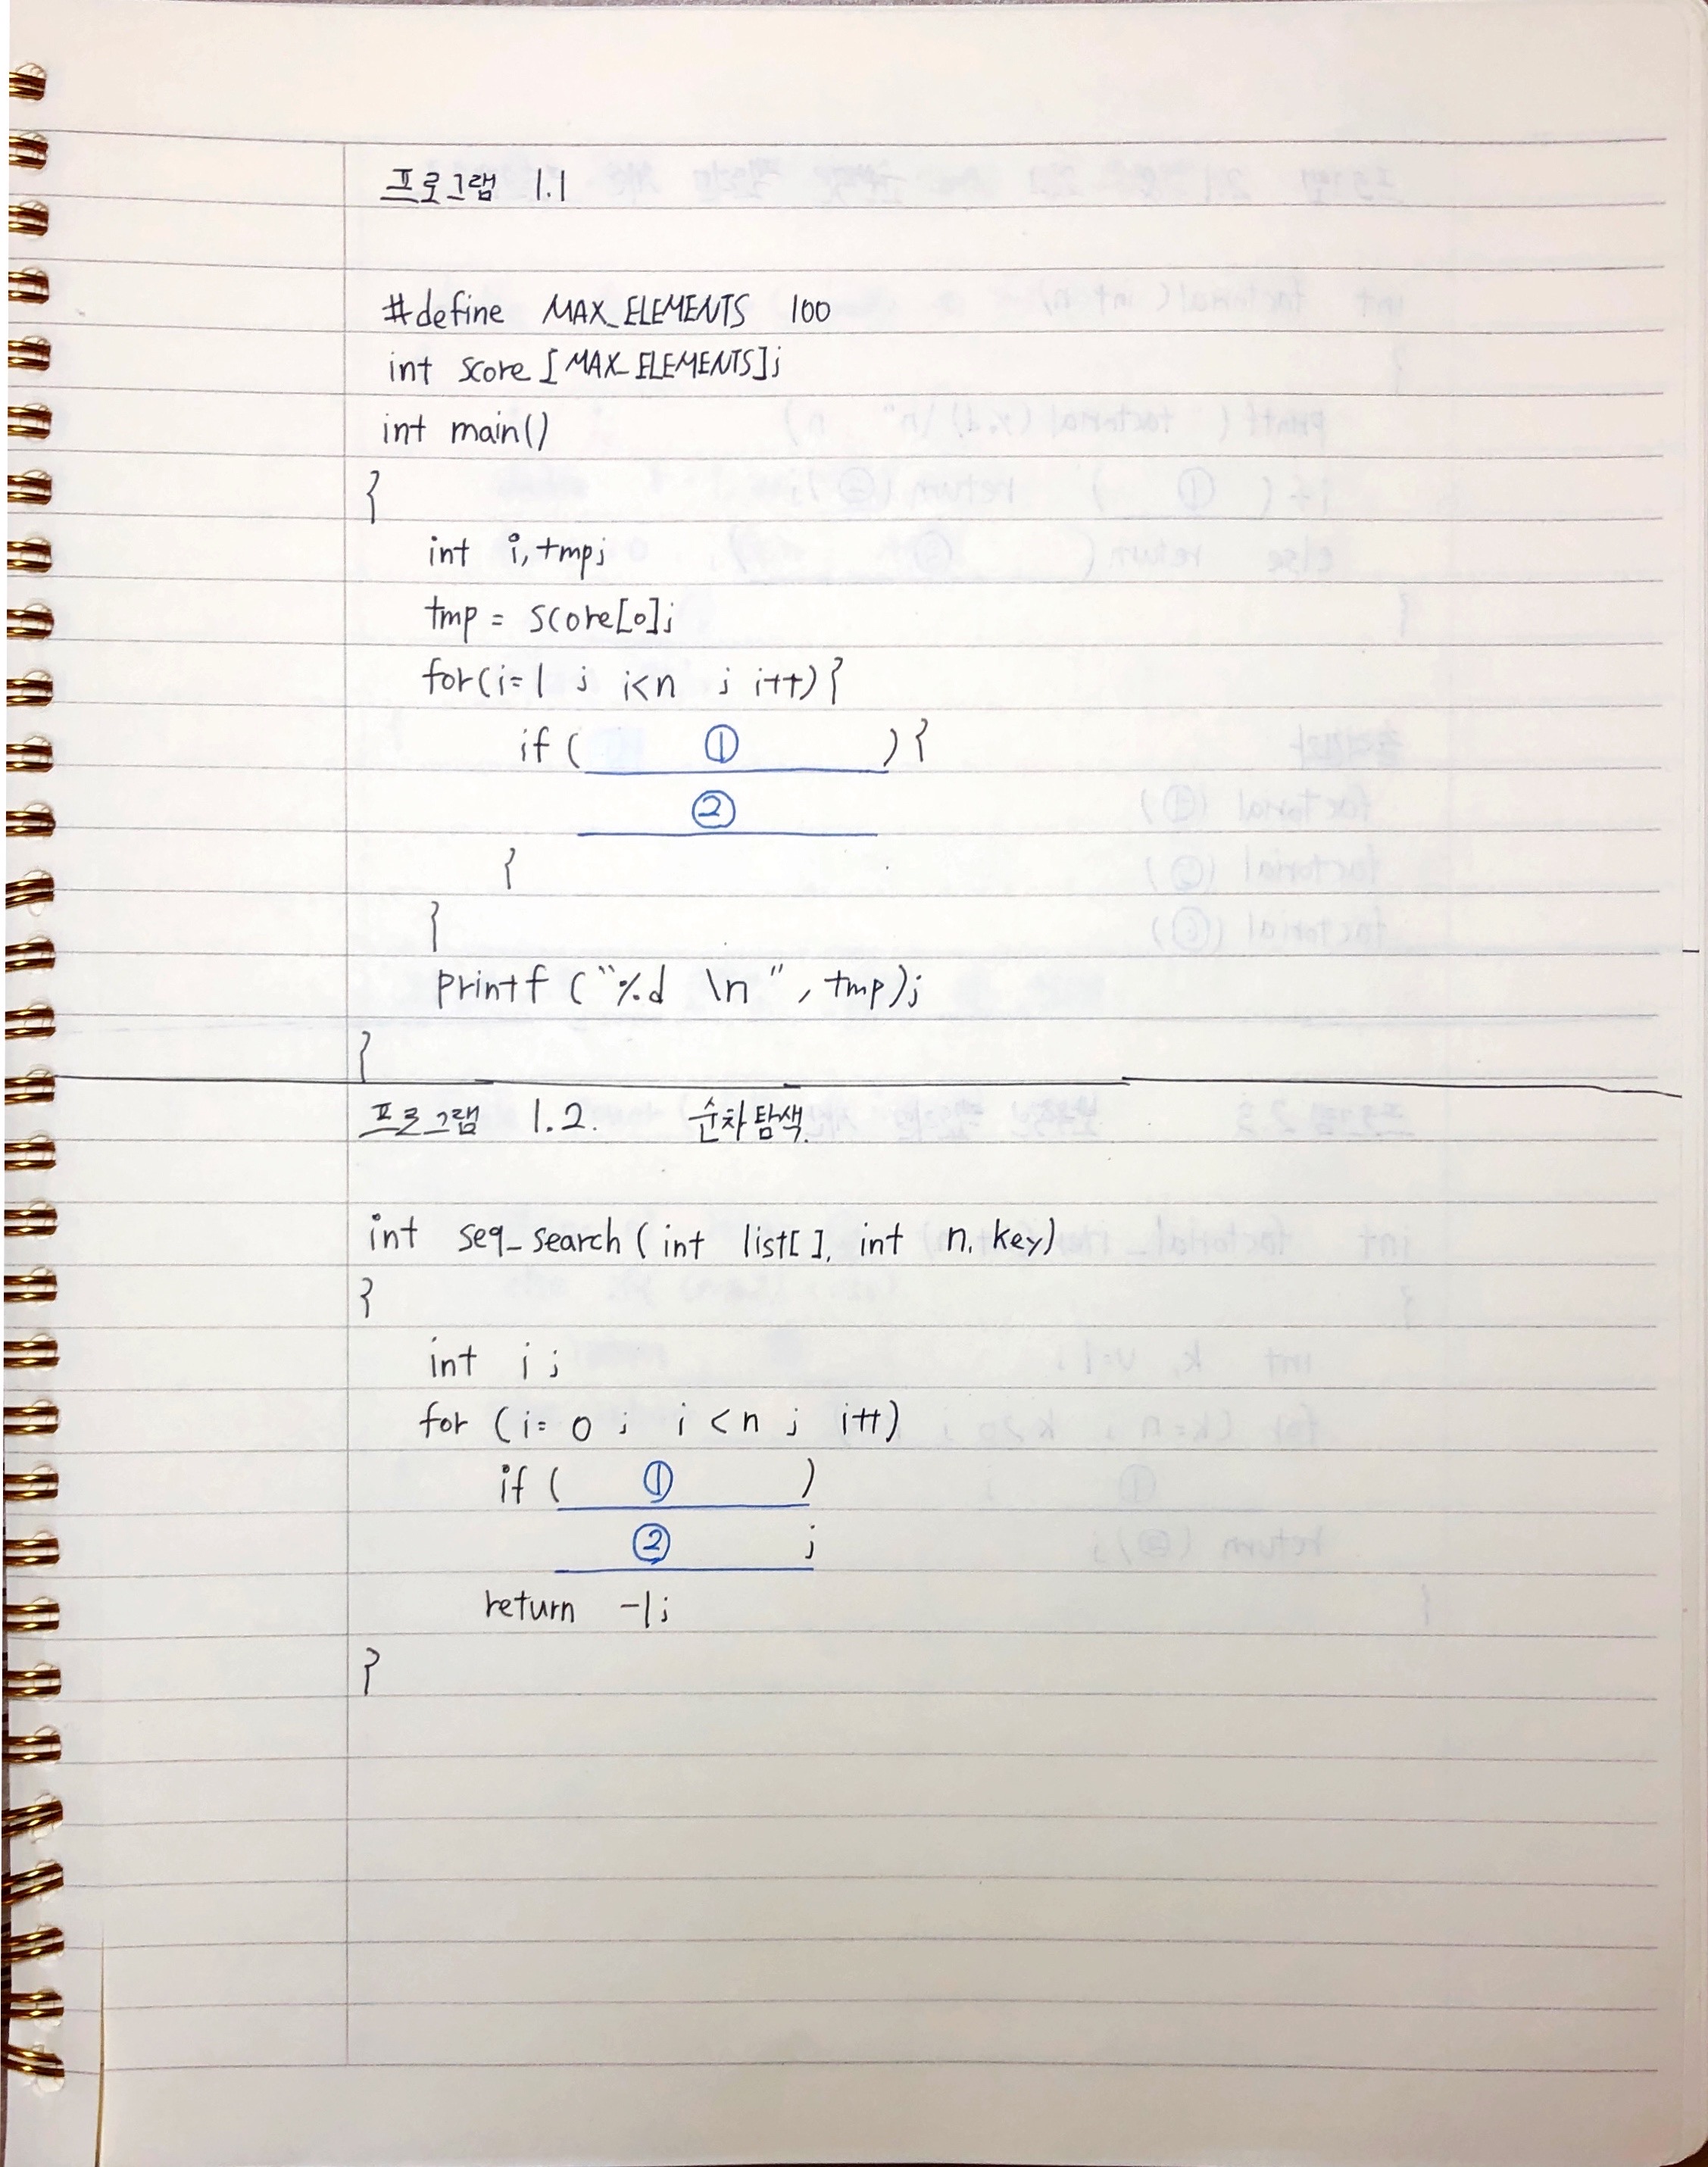 프로그램 1.1
#define MAX_ELEMENTS 100
int score[MAX_ELEMENTS];
int main()
{
int i, tmp;
tmp = score[0];
for(i=1 ; i<n ; i++){
if ( ① ) {
②
}
}
printf ("%d \n", tmp);
}
프로그램 1.2. 순차탐색.
int seq_search ( int list[], int n, key)
{
int i ;
for (i= 0 ; i < n ; i++)
if ( ① )
② ;
return -1;
}